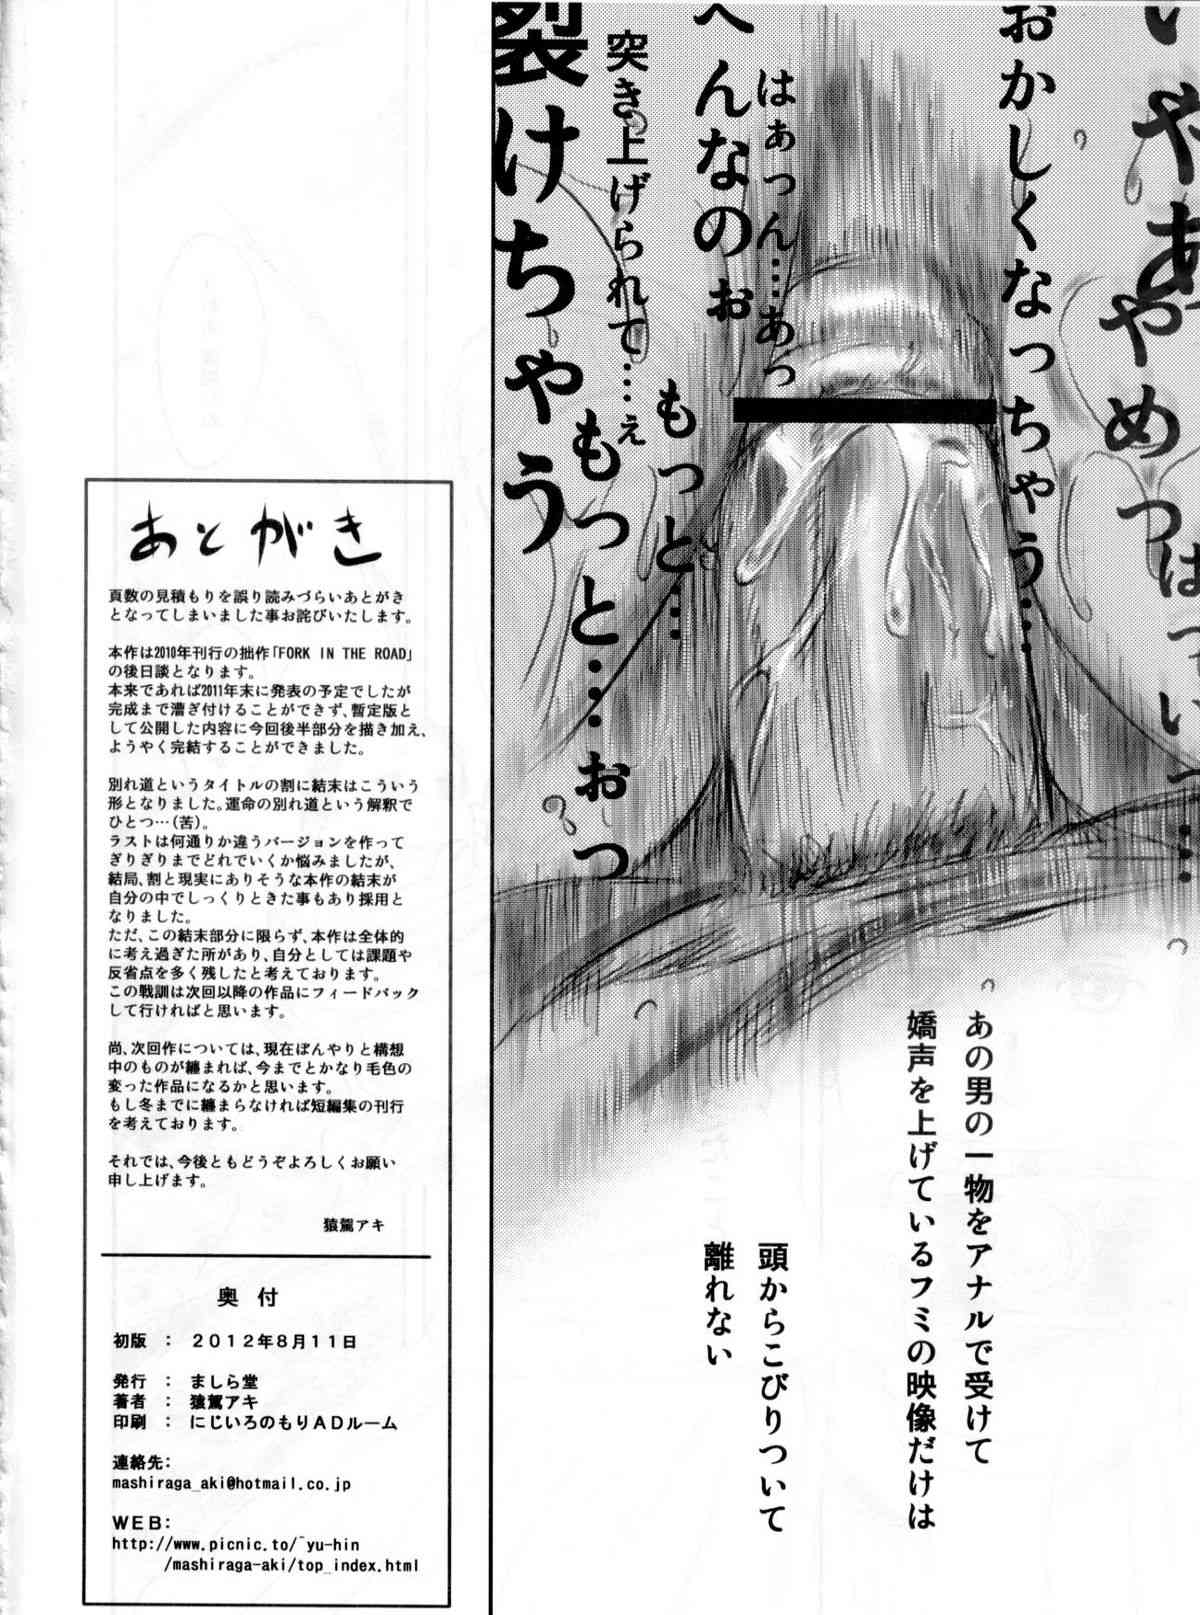 いやあ
やめっはっいっ……
おかしくなっちゃう……
はぁっん…あっ
へんなのぉ
もっと…
突き上げられて……ぇ
もっと…おっ
裂けちゃう
あの男の一物をアナルで受けて
嬌声を上げているフミの映像だけは
頭からこびりついて
離れない
あとがき
頁数の見積もりを誤り読みづらいあとがき
となってしまいました事お詫びいたします。
本作は2010年刊行の拙作「FORK IN THE ROAD」
の後日談となります。
本来であれば2011年末に発表の予定でしたが
完成まで漕ぎ付けることができず、暫定版と
して公開した内容に今回後半部分を描き加え、
ようやく完結することができました。
別れ道というタイトルの割に結末はこういう
形となりました。運命の別れ道という解釈で
ひとつ…(苦)。
ラストは何通りか違うバージョンを作って
ぎりぎりまでどれでいくか悩みましたが、
結局、割と現実にありそうな本作の結末が
自分の中でしっくりときた事もあり採用と
なりました。
ただ、この結末部分に限らず、本作は全体的
に考え過ぎた所があり、自分としては課題や
反省点を多く残したと考えております。
この戦訓は次回以降の作品にフィードバック
して行ければと思います。
尚、次回作については、現在ぼんやりと構想
中のものが纏まれば、今までとかなり毛色の
変った作品になるかと思います。
もし冬までに纏まらなければ短編集の刊行
を考えております。
それでは、今後ともどうぞよろしくお願い
申し上げます。
猿駕アキ
奥付
初版 : 2012年8月11日
発行 : ましら堂
著者 : 猿駕アキ
印刷 : にじいろのもりADルーム
連絡先:
mashiraga_aki@hotmail.co.jp
WEB:
http://www.picnic.to/~yu-hin
/mashiraga-aki/top_index.html